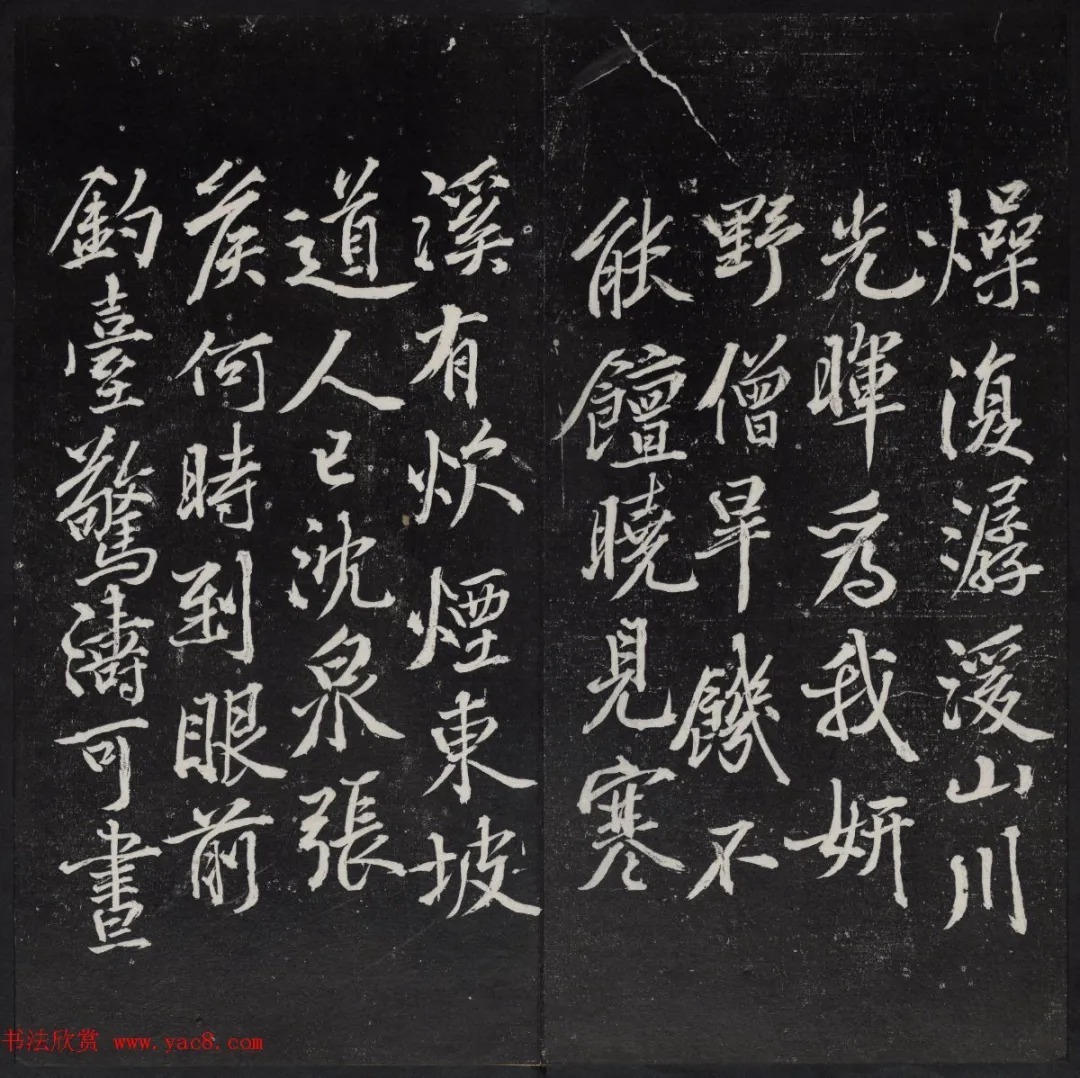 燥復潺湲山川
光暉為我妍
野僧旱饑不
能饘曉見寒
溪有炊煙東坡
道人已沈泉張
侯何時到眼前
釣臺驚濤可晝
书法欣赏 www.yac8.com